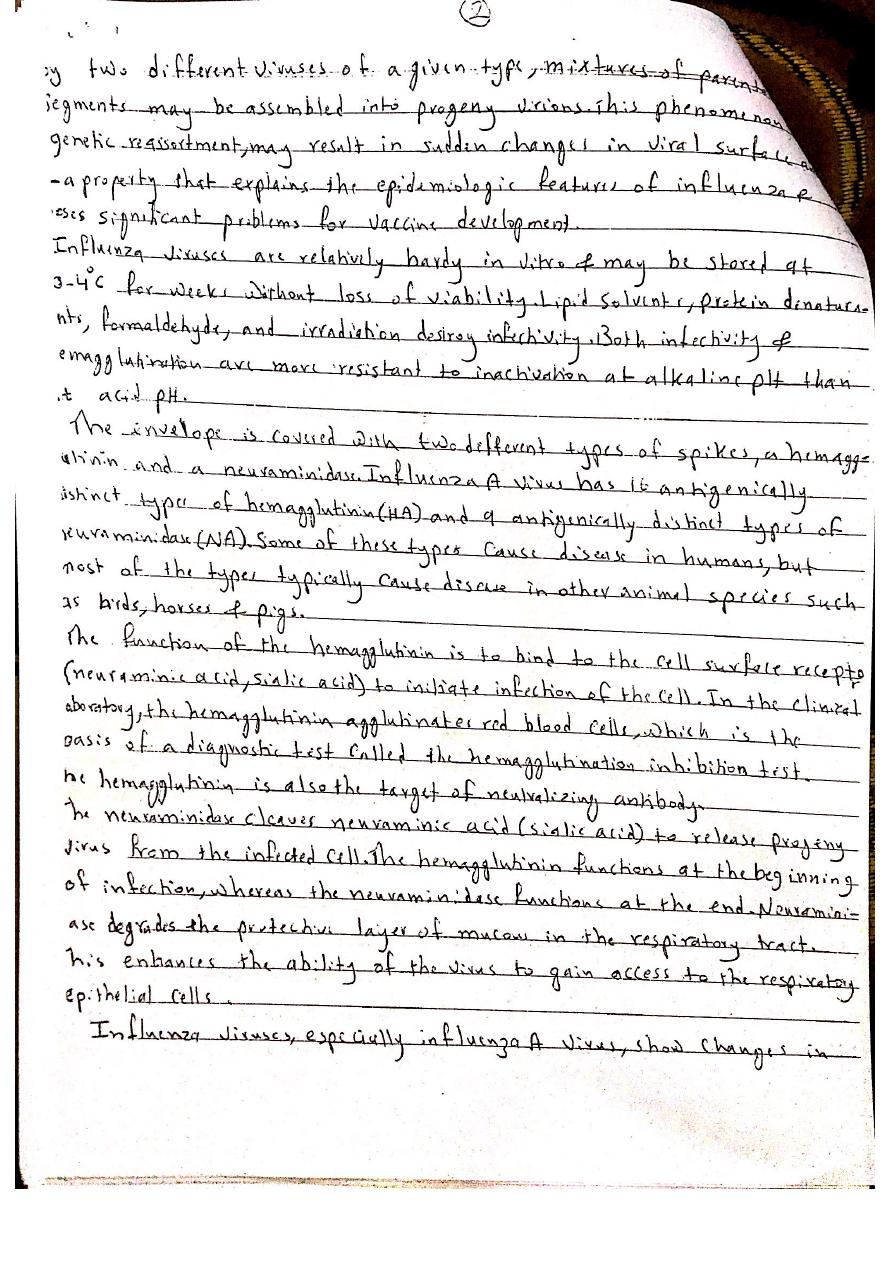 2
by two different viruses of a given type, mixtures of parent
segments may be assembled into progeny virions. This phenomenon
genetic reassortment, may result in sudden changes in viral surface a
- a property that explains the epidemiologic features of influenza &
oses significant problems for vaccine development.
Influenza viruses are relatively hardy in vitro & may be stored at
3-4°C for weeks without loss of viability. Lipid solvents, protein denatura-
nts, formaldehyde, and irradiation destroy infectivity. Both infectivity &
emagglutination are more resistant to inactivation at alkaline pH than
at acid pH.
The envelope is covered with two different types of spikes, a hemagg-
utinin and a neuraminidase. Influenza A virus has 16 antigenically
istinct types of hemagglutinin (HA) and 9 antigenically distinct types of
neuraminidase (NA). Some of these types cause disease in humans, but
most of the types typically cause disease in other animal species such
as birds, horses & pigs.
The function of the hemagglutinin is to bind to the cell surface recepto
(neuraminic acid, sialic acid) to initiate infection of the cell. In the clinical
aboratory, the hemagglutinin agglutinates red blood cells, which is the
basis of a diagnostic test called the hemagglutination inhibition test.
he hemagglutinin is also the target of neutralizing antibody.
The neuraminidase cleaves neuraminic acid (sialic acid) to release progeny
virus from the infected cell. The hemagglutinin functions at the beginning
of infection, whereas the neuraminidase functions at the end. Neuramini-
ase degrades the protective layer of mucous in the respiratory tract.
his enhances the ability of the virus to gain access to the respiratory
epithelial cells.
Influenza viruses, especially influenza A virus, show changes in